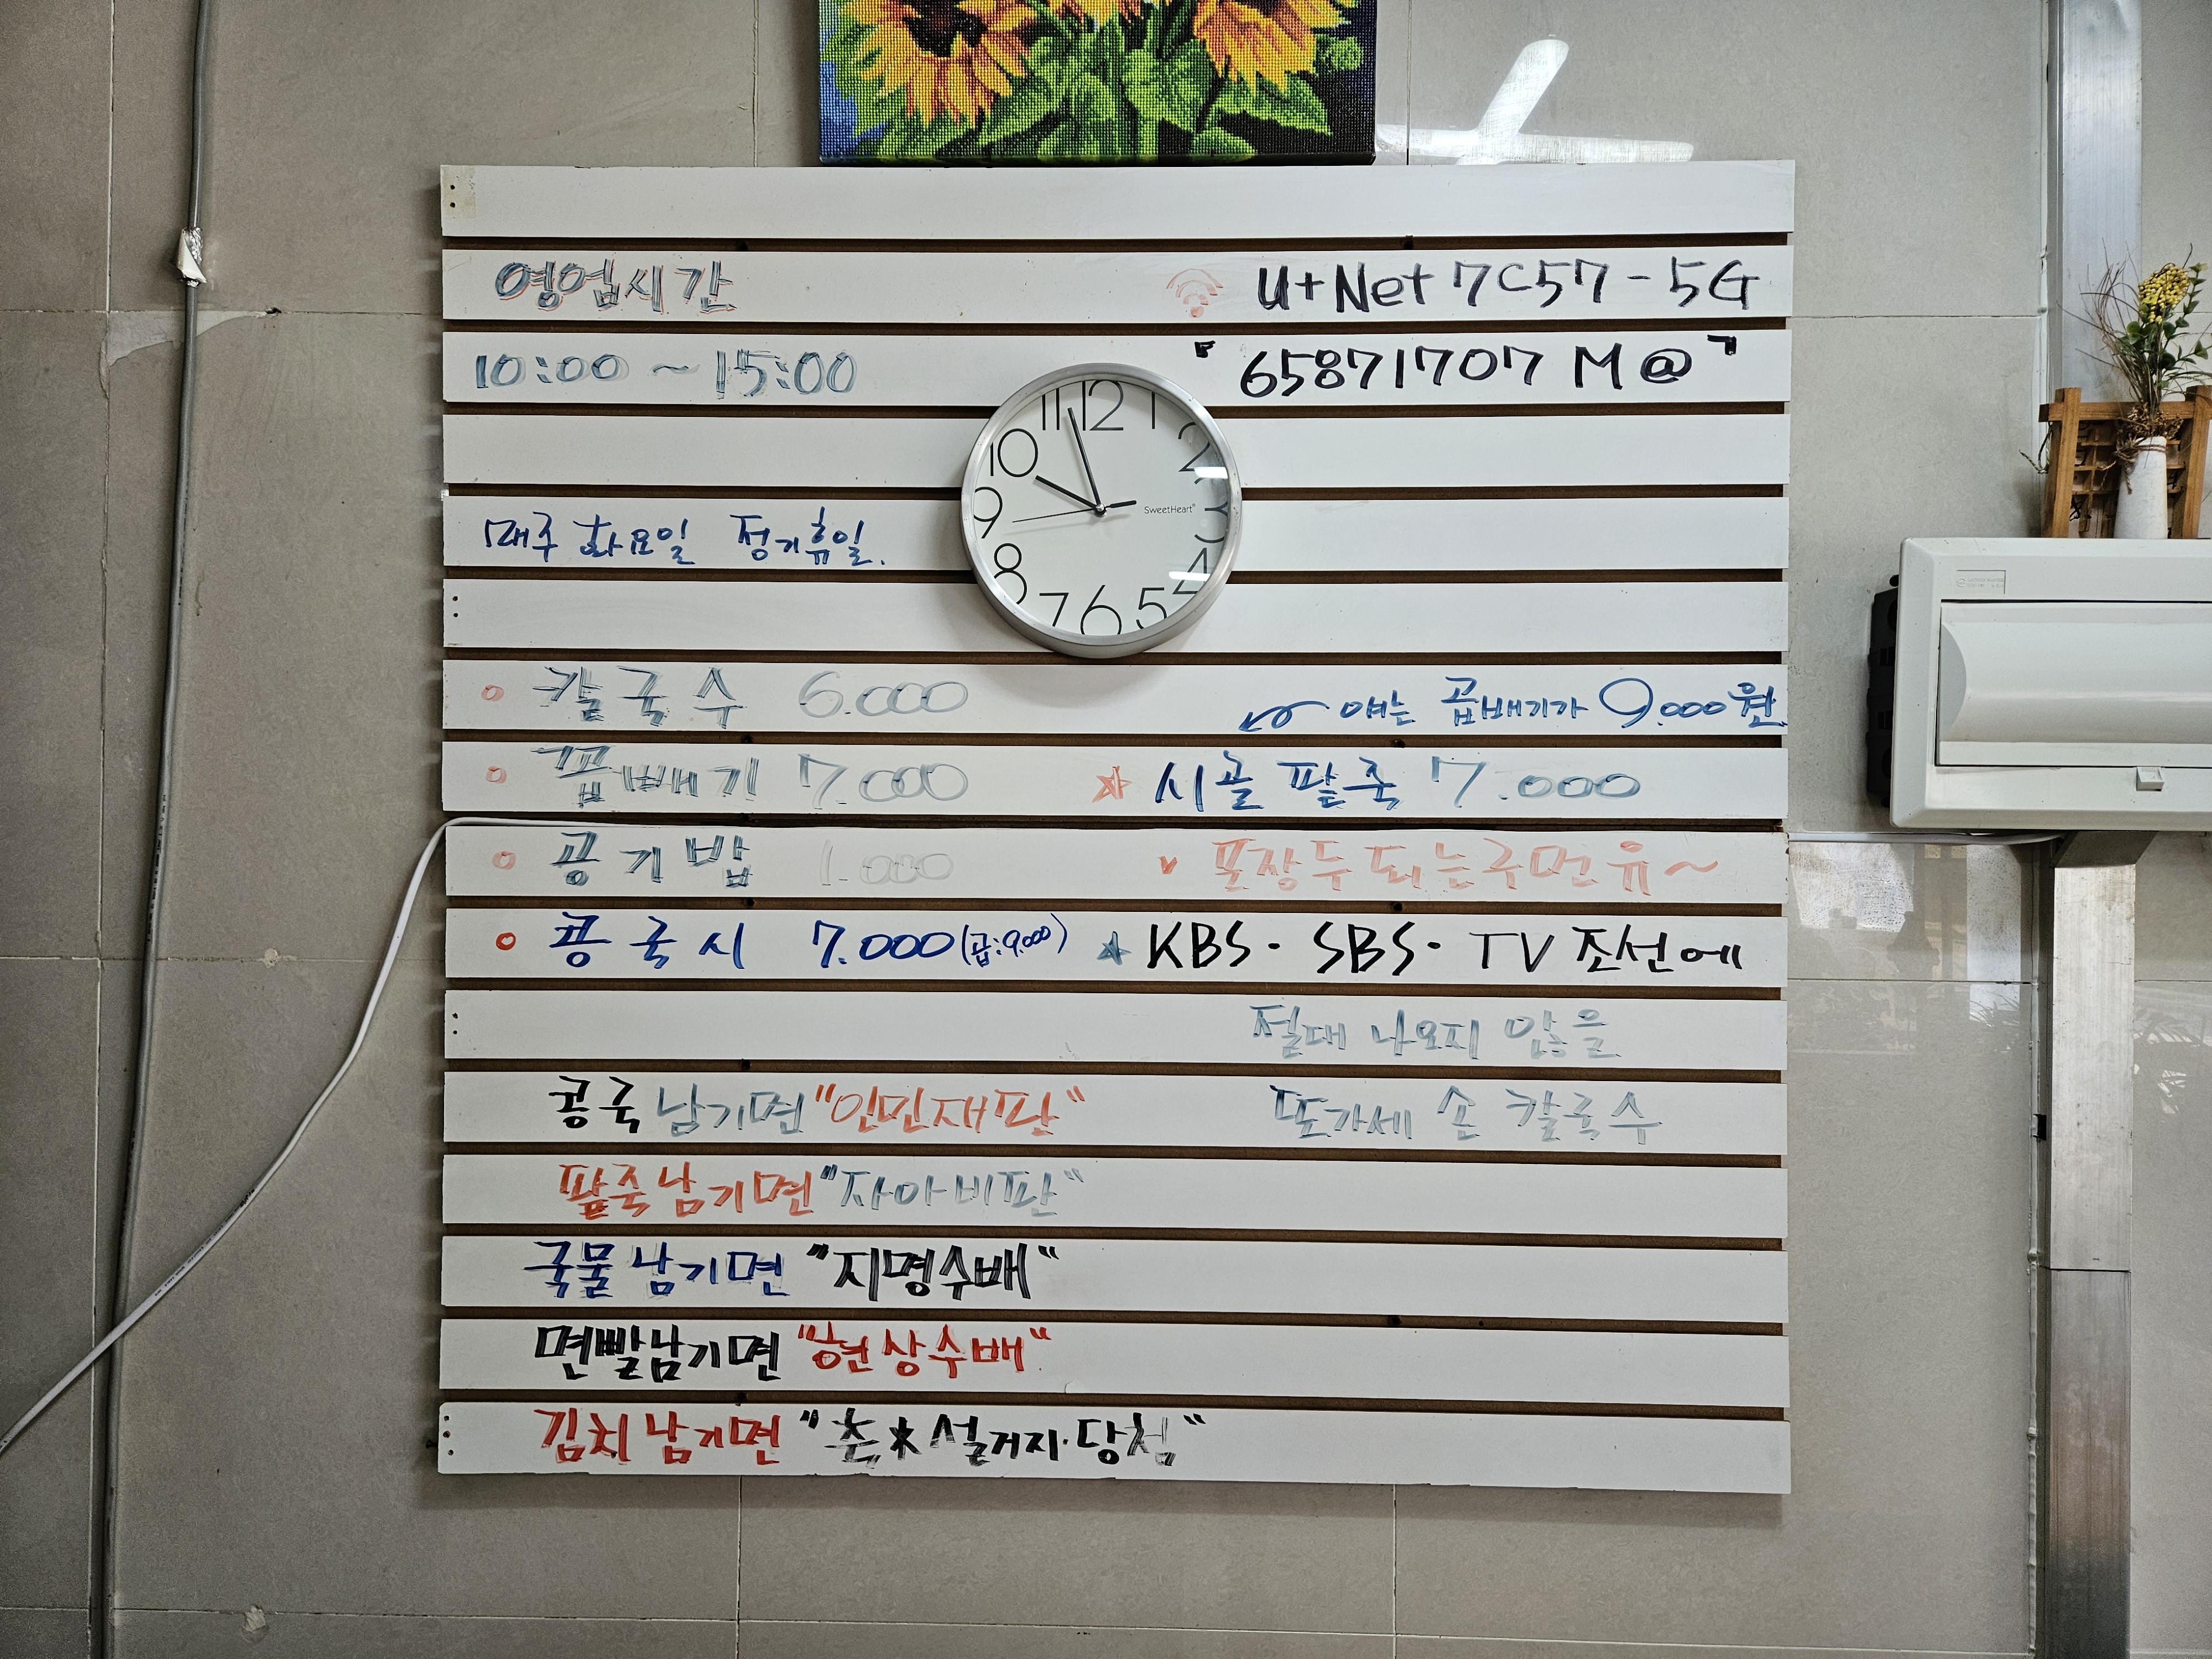 영업시간
U+Net 7C57-5G
10:00 ~ 15:00
「65871707 M@」
11 12 1
10 2
9 SweetHeart
8 4
7 6 5
매주 화요일 정기휴일.
칼국수 6.000
얘는 곱배기가 9.000원
곱배기 7.000
☆ 시골 팥죽 7.000
공기밥 1.000
포장두 되는구먼유~
콩국시 7.000 (곱:9.000)
☆ KBS· SBS· TV 조선에
절대 나오지 않을
콩국 남기면 "인민재판"
또가세 손 칼국수
팥죽 남기면 "자아비판"
국물 남기면 "지명수배"
면빨 남기면 "현상수배"
김치 남기면 "춘 설거지·당첨"